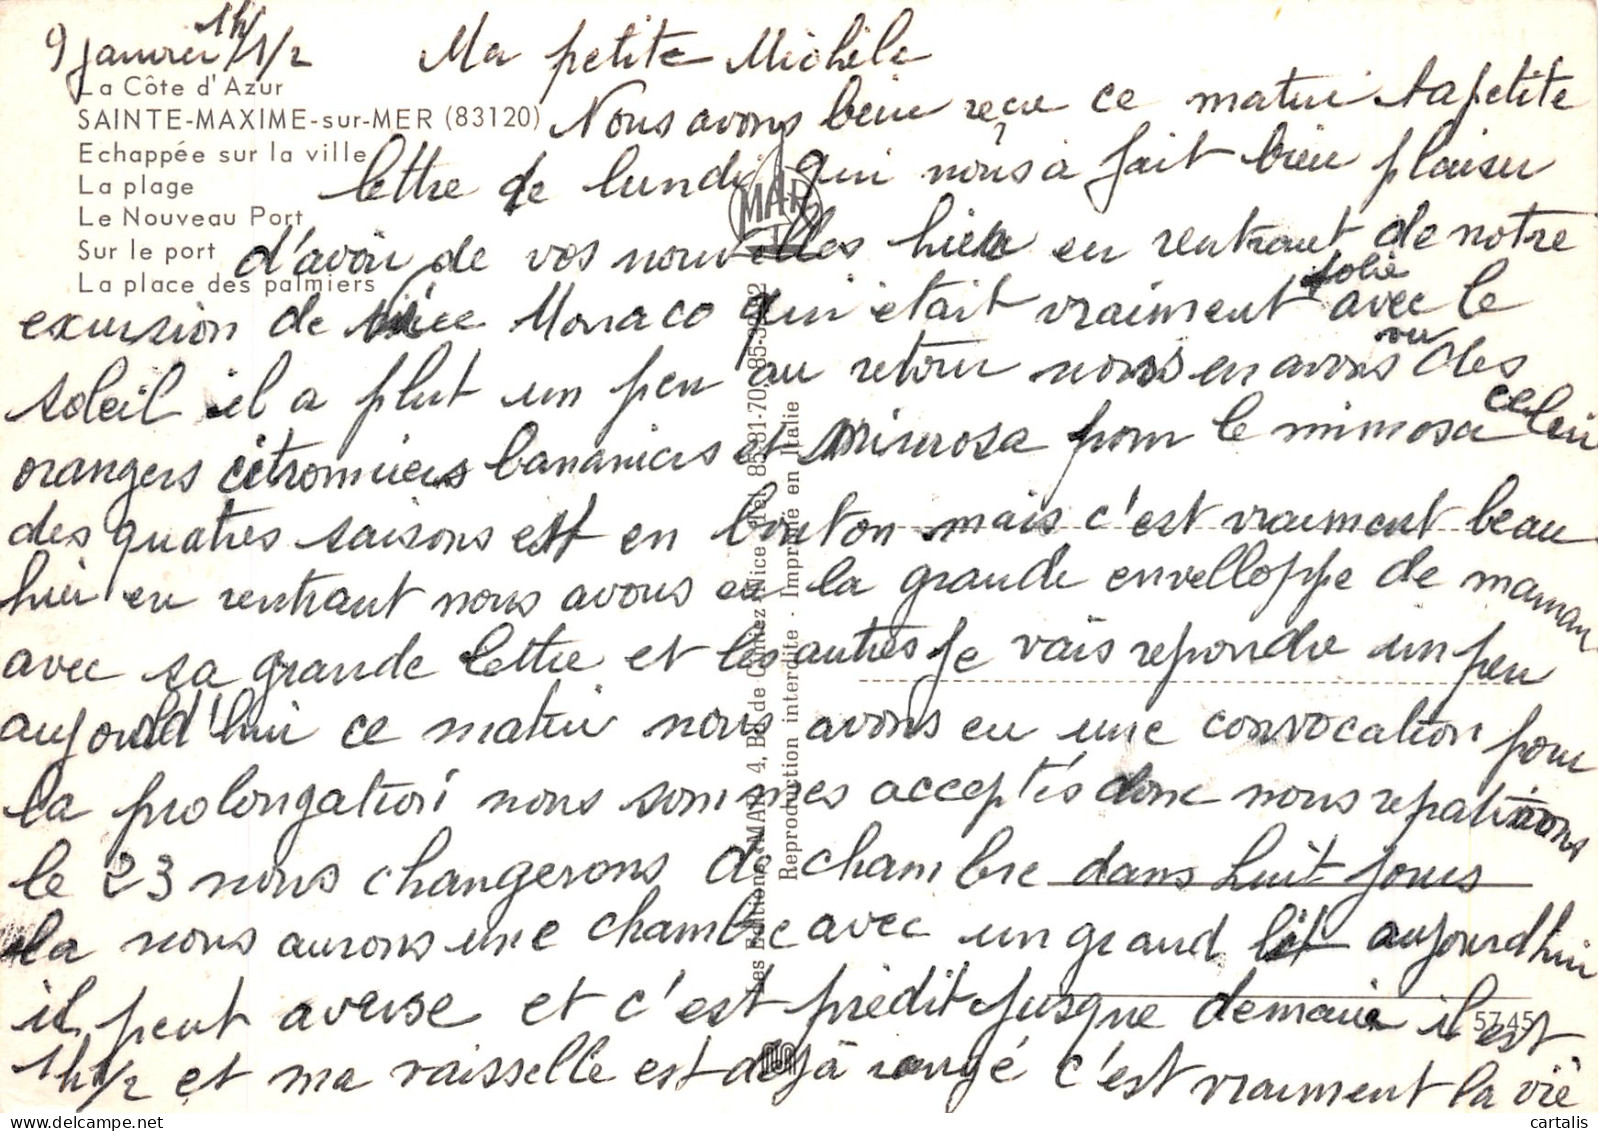 9 janvier 1h 1/2 Ma petite Michèle
La Côte d'Azur
SAINTE-MAXIME-sur-MER (83120)
Echappée sur la ville
La plage
Le Nouveau Port
Sur le port
La place des palmiers
Nous avons bien reçu ce matin ta petite
lettre de lundi qui nous a fait bien plaisir
d'avoir de vos nouvelles hier en rentrant de notre
excursion de Nice Monaco qui était vraiment jolie avec le
soleil il a plut un peu au retour nous en avons vu des
orangers citronniers bananiers et mimosa pour le mimosa celui
des quatres saisons est en bouton mais c'est vraiment beau
hier en rentrant nous avons eu la grande enveloppe de maman
avec sa grande lettre et les autres je vais repondre un peu
aujourd'hui ce matin nous avons eu une convocation pour
la prolongation nous sommes acceptés donc nous repatirons
le 23 nous changerons de chambre dans huit jours
la nous aurons une chambre avec un grand lit aujourdhui
il peut averse et c'est prédit jusque demain il est
1h1/2 et ma vaisselle est déjà rangé c'est vraiment la vie
MAR
Les Editions "MAR" 4, Bd de Cimiez Nice Tel. 85-81-70
Reproduction interdite - Imprimé en Italie
5745
cartalis.com